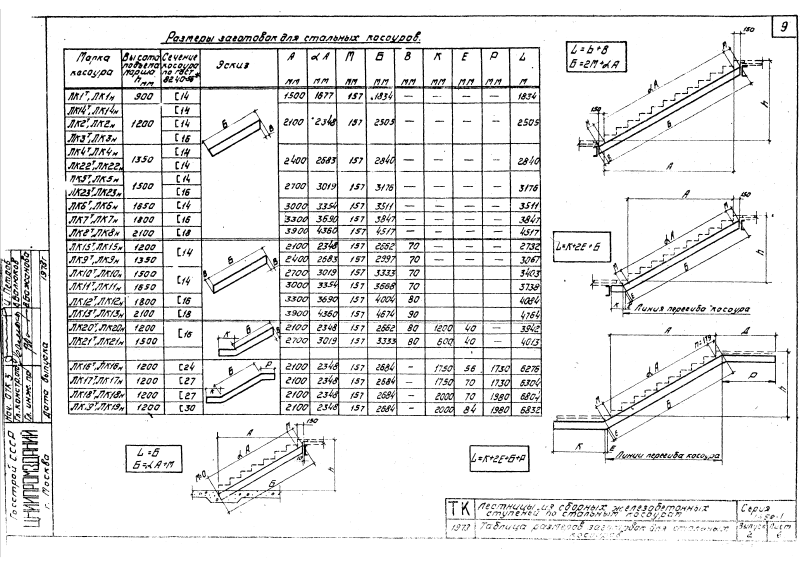 9
Размеры заготовок для стальных косоуров.
Марка косоура | Высота подъема марша h мм | Сечение косоура по ГОСТ 8240-56* | Эскиз | А мм | αА мм | М мм | Б мм | В мм | К мм | Е мм | Р мм | L м
ЛК1т, ЛК1н | 900 | [14 | 1500 | 1677 | 157 | 1834 | — | — | — | — | 1834
ЛК14т, ЛК14н | 1200 | [14 | 2100 | 2348 | 157 | 2505 | — | — | — | — | 2505
ЛК2т, ЛК2н | [14
ЛК3т, ЛК3н | [16
ЛК4т, ЛК4н | 1350 | [14 | 2400 | 2683 | 157 | 2840 | — | — | — | — | 2840
ЛК22т, ЛК22н | [14
ЛК5т, ЛК5н | 1500 | [14 | 2700 | 3019 | 157 | 3176 | — | — | — | — | 3176
ЛК23т, ЛК23н | [16
ЛК6т, ЛК6н | 1650 | [14 | 3000 | 3354 | 157 | 3511 | — | — | — | — | 3511
ЛК7т, ЛК7н | 1800 | [16 | 3300 | 3690 | 157 | 3847 | — | — | — | — | 3847
ЛК8н | 2100 | [18 | 3900 | 4360 | 157 | 4517 | — | — | — | — | 4517
ЛК15т, ЛК15н | 1200 | [14 | 2100 | 2348 | 157 | 2662 | 70 | 2732
ЛК9т, ЛК9н | 1350 | 2400 | 2683 | 157 | 2997 | 70 | 3067
ЛК10т, ЛК10н | 1500 | [14 | 2700 | 3019 | 157 | 3333 | 70 | 3403
ЛК11т, ЛК11н | 1650 | 3000 | 3354 | 157 | 3668 | 70 | 3738
ЛК12т, ЛК12н | 1800 | [16 | 3300 | 3690 | 157 | 4004 | 80 | 4084
ЛК13т, ЛК13н | 2100 | [18 | 3900 | 4360 | 157 | 4674 | 90 | 4764
ЛК20т, ЛК20н | 1200 | [16 | 2100 | 2348 | 157 | 2662 | 80 | 1200 | 40 | — | 3942
ЛК21т, ЛК21н | 1500 | 2700 | 3019 | 157 | 3333 | 80 | 600 | 40 | — | 4013
ЛК16т, ЛК16н | 1200 | [24 | 2100 | 2348 | 157 | 2684 | — | 1750 | 56 | 1730 | 6276
ЛК17т, ЛК17н | 1200 | [27 | 2100 | 2348 | 157 | 2684 | — | 1750 | 70 | 1730 | 6304
ЛК18т, ЛК18н | 1200 | [27 | 2100 | 2348 | 157 | 2684 | — | 2000 | 70 | 1980 | 6804
1200 | [30 | 2100 | 2348 | 157 | 2684 | — | 2000 | 84 | 1980 | 6832
L = Б + В
Б = 2М + αА
L = К + 2Е + Б
Линия перегиба косоура
Линии перегиба косоура
L = К + 2Е + Б + Р
L = Б
Б = αА + М
М=0
150
Госстрой СССР
ЦНИИПРОМЗДАНИЙ
г. Москва
Дата выпуска 1978г.
ТК
1978
Лестницы из сборных железобетонных ступеней по стальным косоурам
Таблица размеров заготовок для стальных косоуров
Серия
Выпуск 2
Лист 6